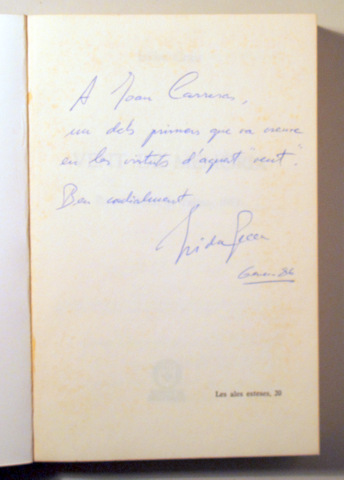 A Joan Carreras,
un dels primers que va creure
en les virtuts d'aquest "vent".
Ben cordialment
Gener 86
Les ales esteses, 20